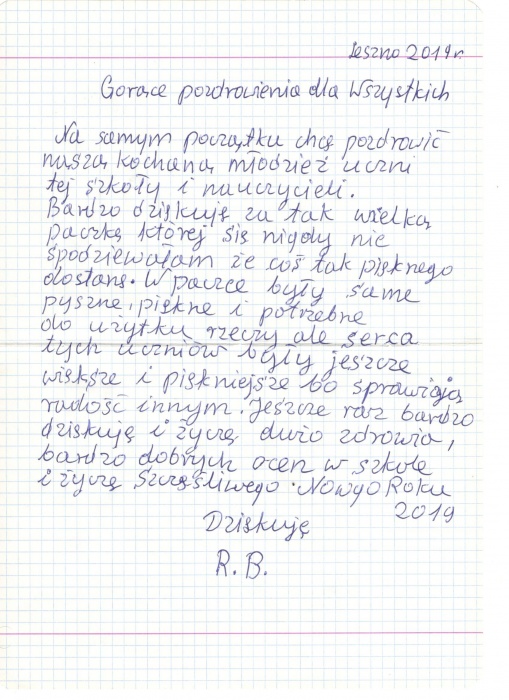 Leszno 2019 r.
Gorące pozdrowienia dla Wszystkich
Na samym początku chcę pozdrowić
naszą kochaną młodzież uczni
tej szkoły i nauczycieli.
Bardzo dziękuję za tak wielką
paczkę której się nigdy nie
spodziewałam że coś tak pięknego
dostanę. W paczce były same
pyszne, piękne i potrzebne
do użytku rzeczy ale serca
tych uczniów były jeszcze
większe i piękniejsze bo sprawiają
radość innym. Jeszcze raz bardzo
dziękuję i życzę dużo zdrowia,
bardzo dobrych ocen w szkole
i życzę Szczęśliwego Nowgo Roku
2019
Dziękuję
R. B.